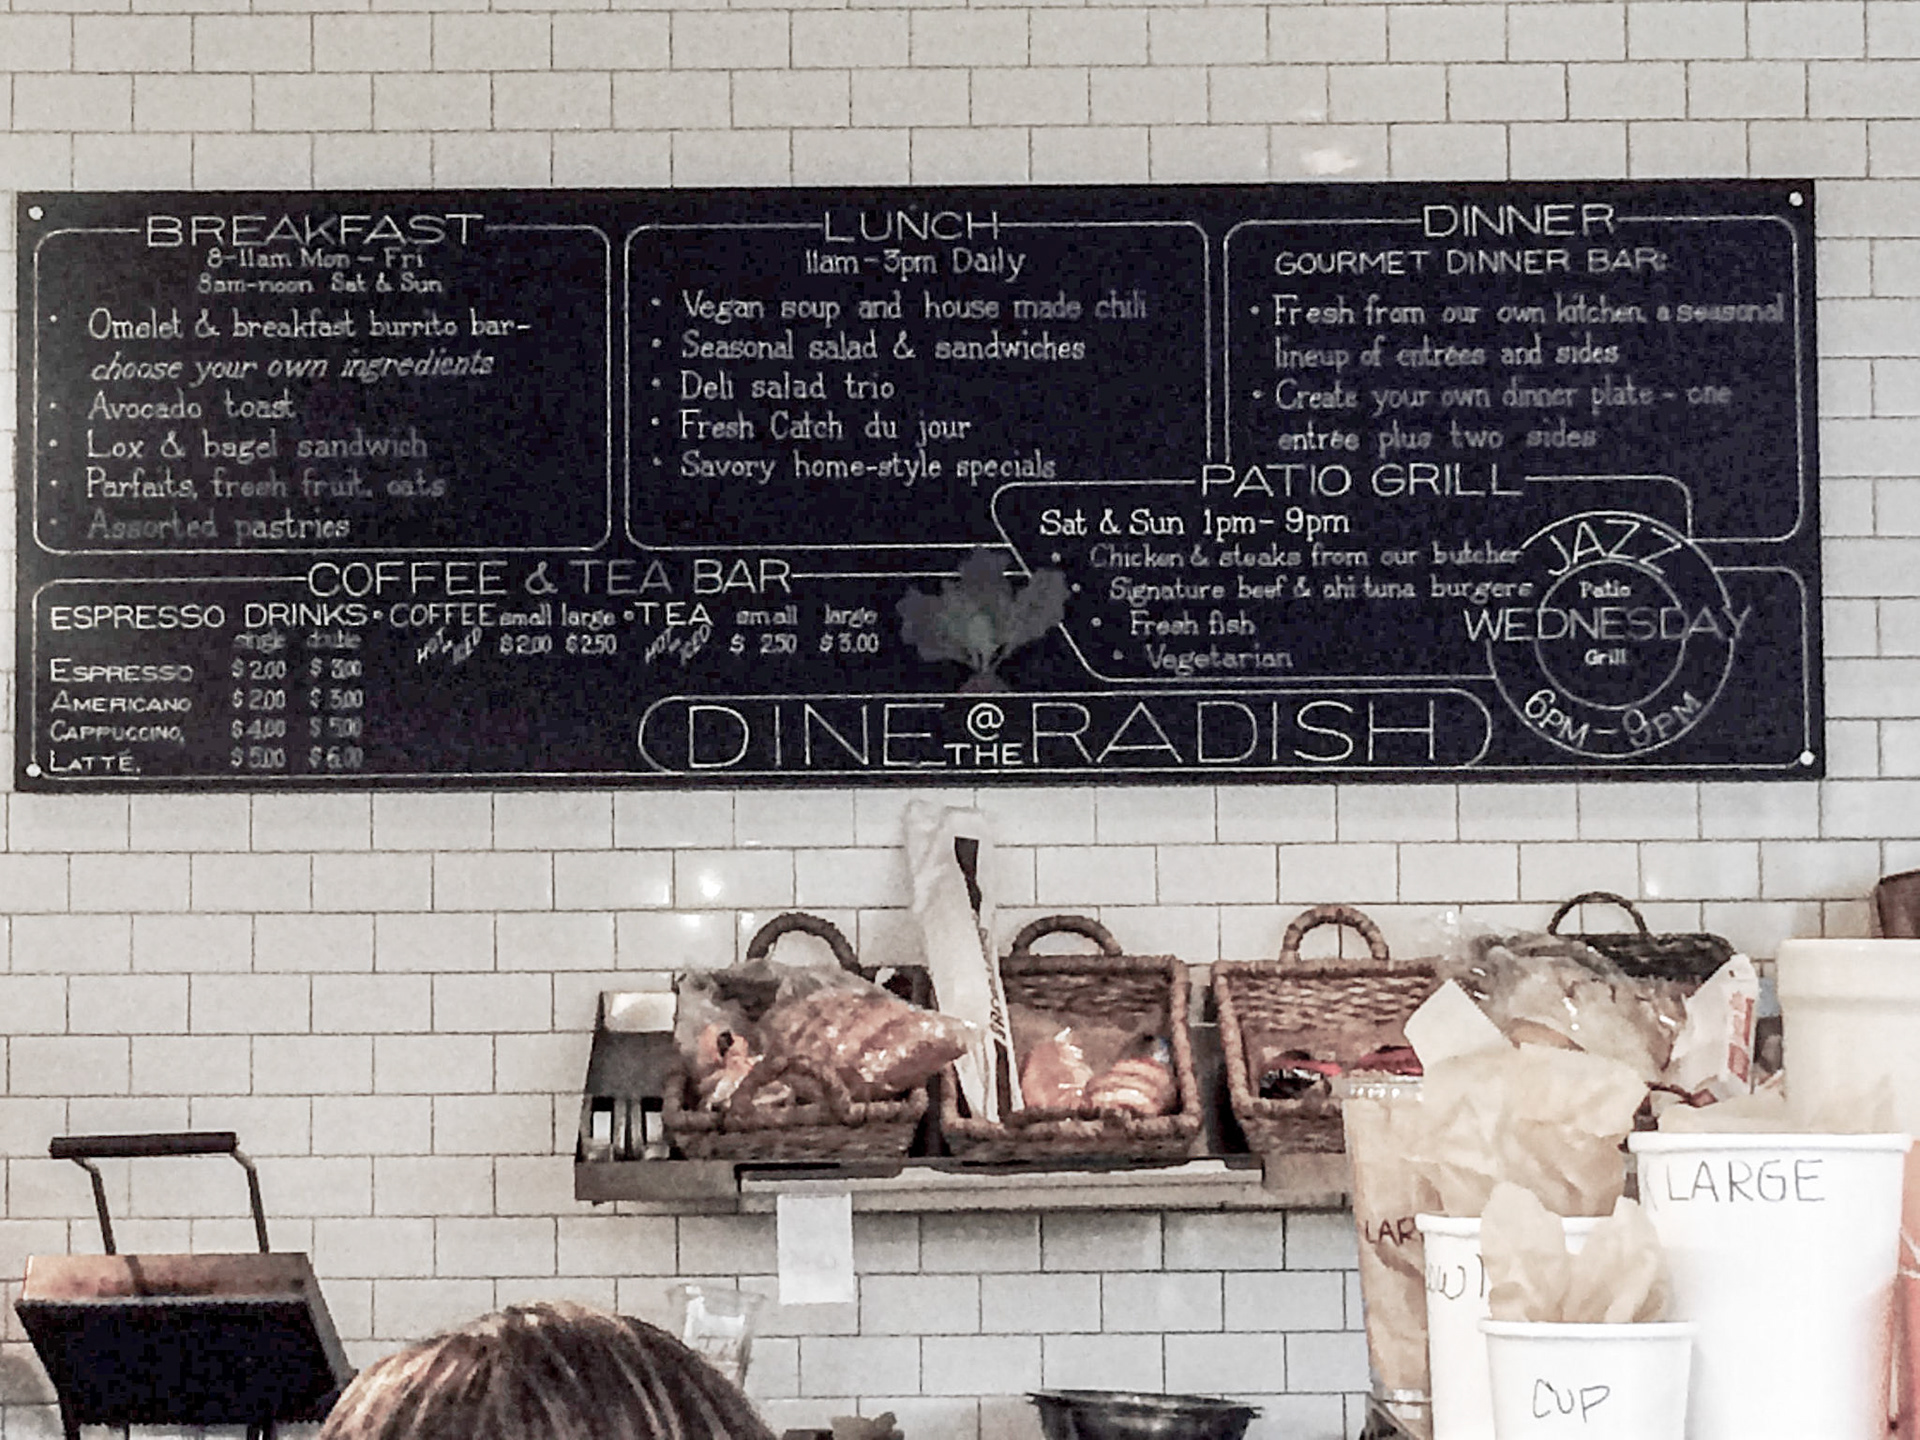 BREAKFAST
8-11am Mon - Fri
8am-noon Sat & Sun
• Omelet & breakfast burrito bar-
choose your own ingredients
• Avocado toast
• Lox & bagel sandwich
• Parfaits, fresh fruit, oats
• Assorted pastries
LUNCH
11am-3pm Daily
• Vegan soup and house made chili
• Seasonal salad & sandwiches
• Deli salad trio
• Fresh Catch du jour
• Savory home-style specials
DINNER
GOURMET DINNER BAR:
• Fresh from our own kitchen, a seasonal
lineup of entrées and sides
• Create your own dinner plate - one
entrée plus two sides
PATIO GRILL
Sat & Sun 1pm-9pm
• Chicken & steaks from our butcher
• Signature beef & ahi tuna burgers
• Fresh fish
• Vegetarian
JAZZ
Patio
WEDNESDAY
Grill
6PM-9PM
COFFEE & TEA BAR
ESPRESSO DRINKS • COFFEE small large • TEA small large
single double HOT ICED $2.00 $2.50 HOT ICED $ 2.50 $ 3.00
ESPRESSO $2.00 $3.00
AMERICANO $2.00 $3.00
CAPPUCCINO, $4.00 $5.00
LATTÉ, $5.00 $6.00
DINE @ THE RADISH
LARGE
LAR
CUP